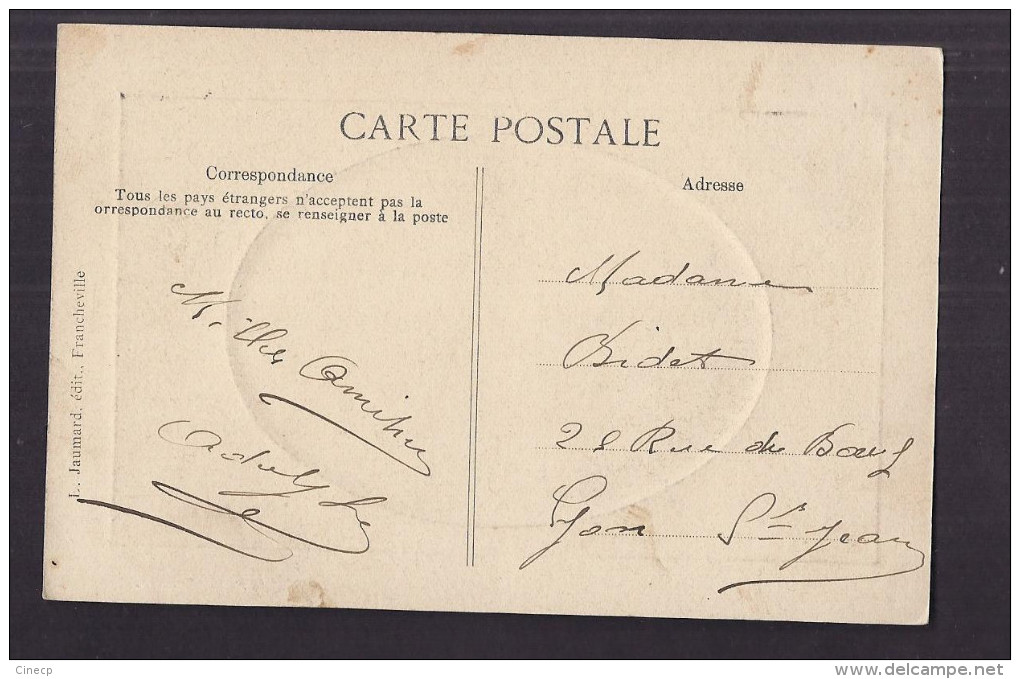 CARTE POSTALE
Correspondance
Tous les pays étrangers n'acceptent pas la
orrespondance au recto, se renseigner à la poste
Adresse
L. Jaumard, édit., Francheville
Milles Amitiés
Adolphe
Madame
Bidet
28 Rue du Bœuf
Lyon St Jean
Cinecp
www.delcampe.net